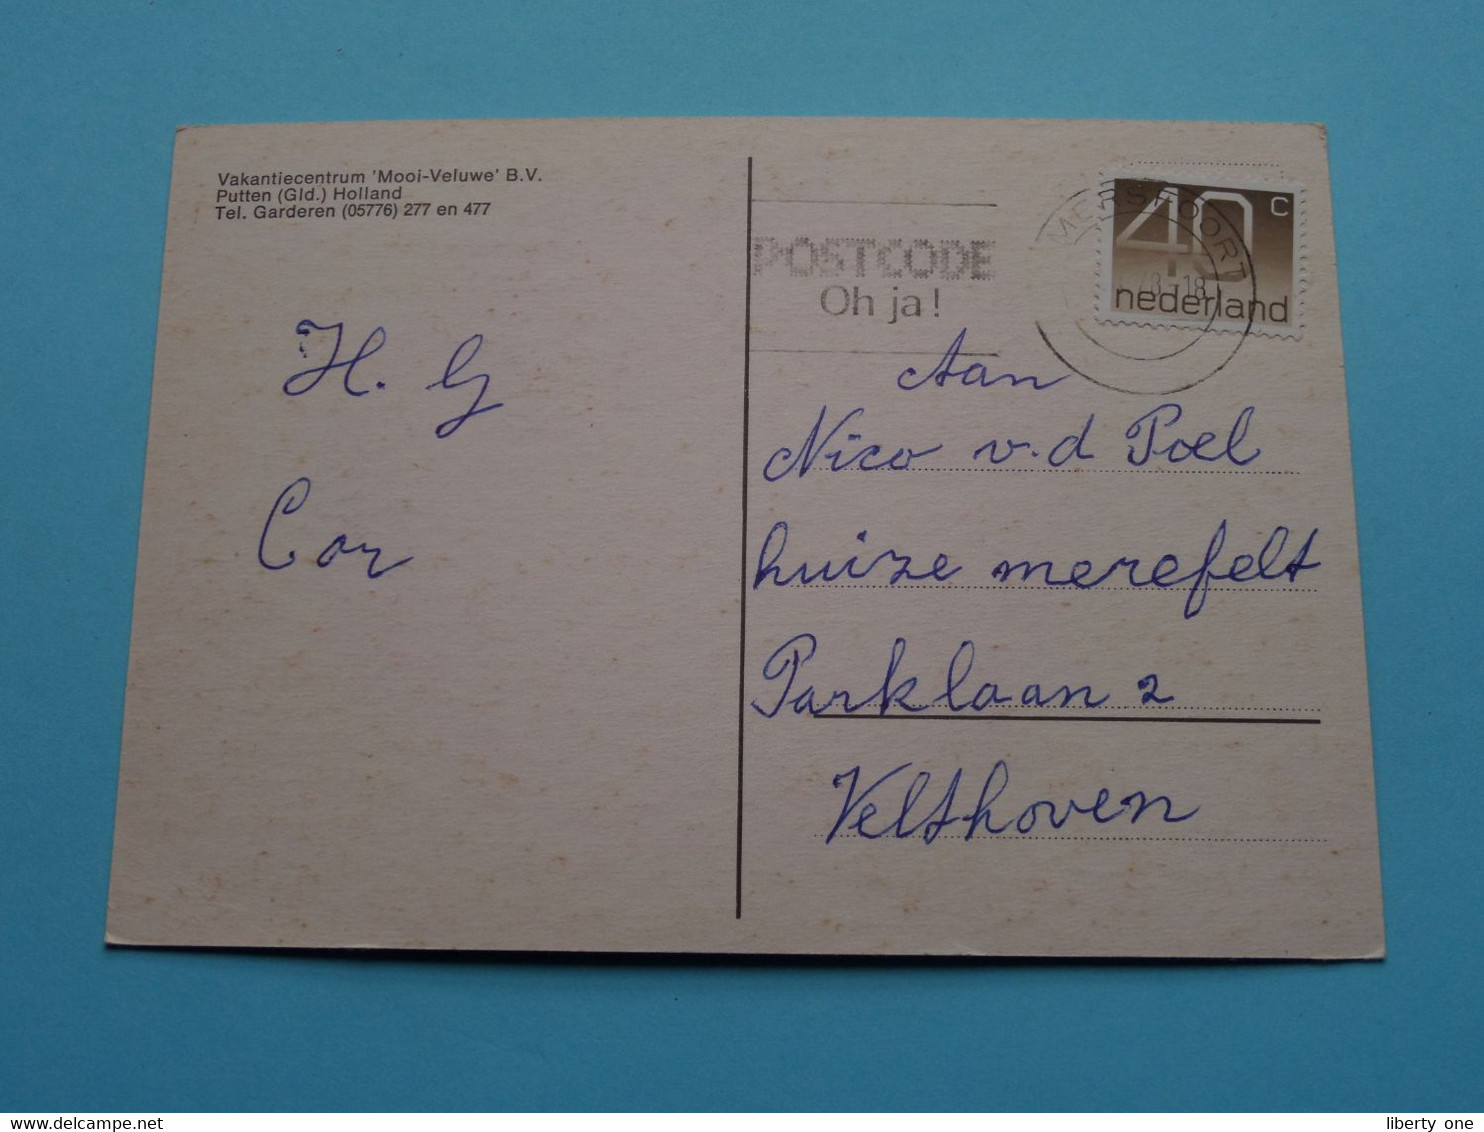 Vakantiecentrum 'Mooi-Veluwe' B.V.
Putten (Gld.) Holland
Tel. Garderen (05776) 277 en 477
H. G
Cor
POSTCODE
Oh ja!
AMERSFOORT
78-18
40 c
nederland
Aan
Nico v.d Poel
huize merefelt
Parklaan 2
Velthoven
www.delcampe.net
liberty_one